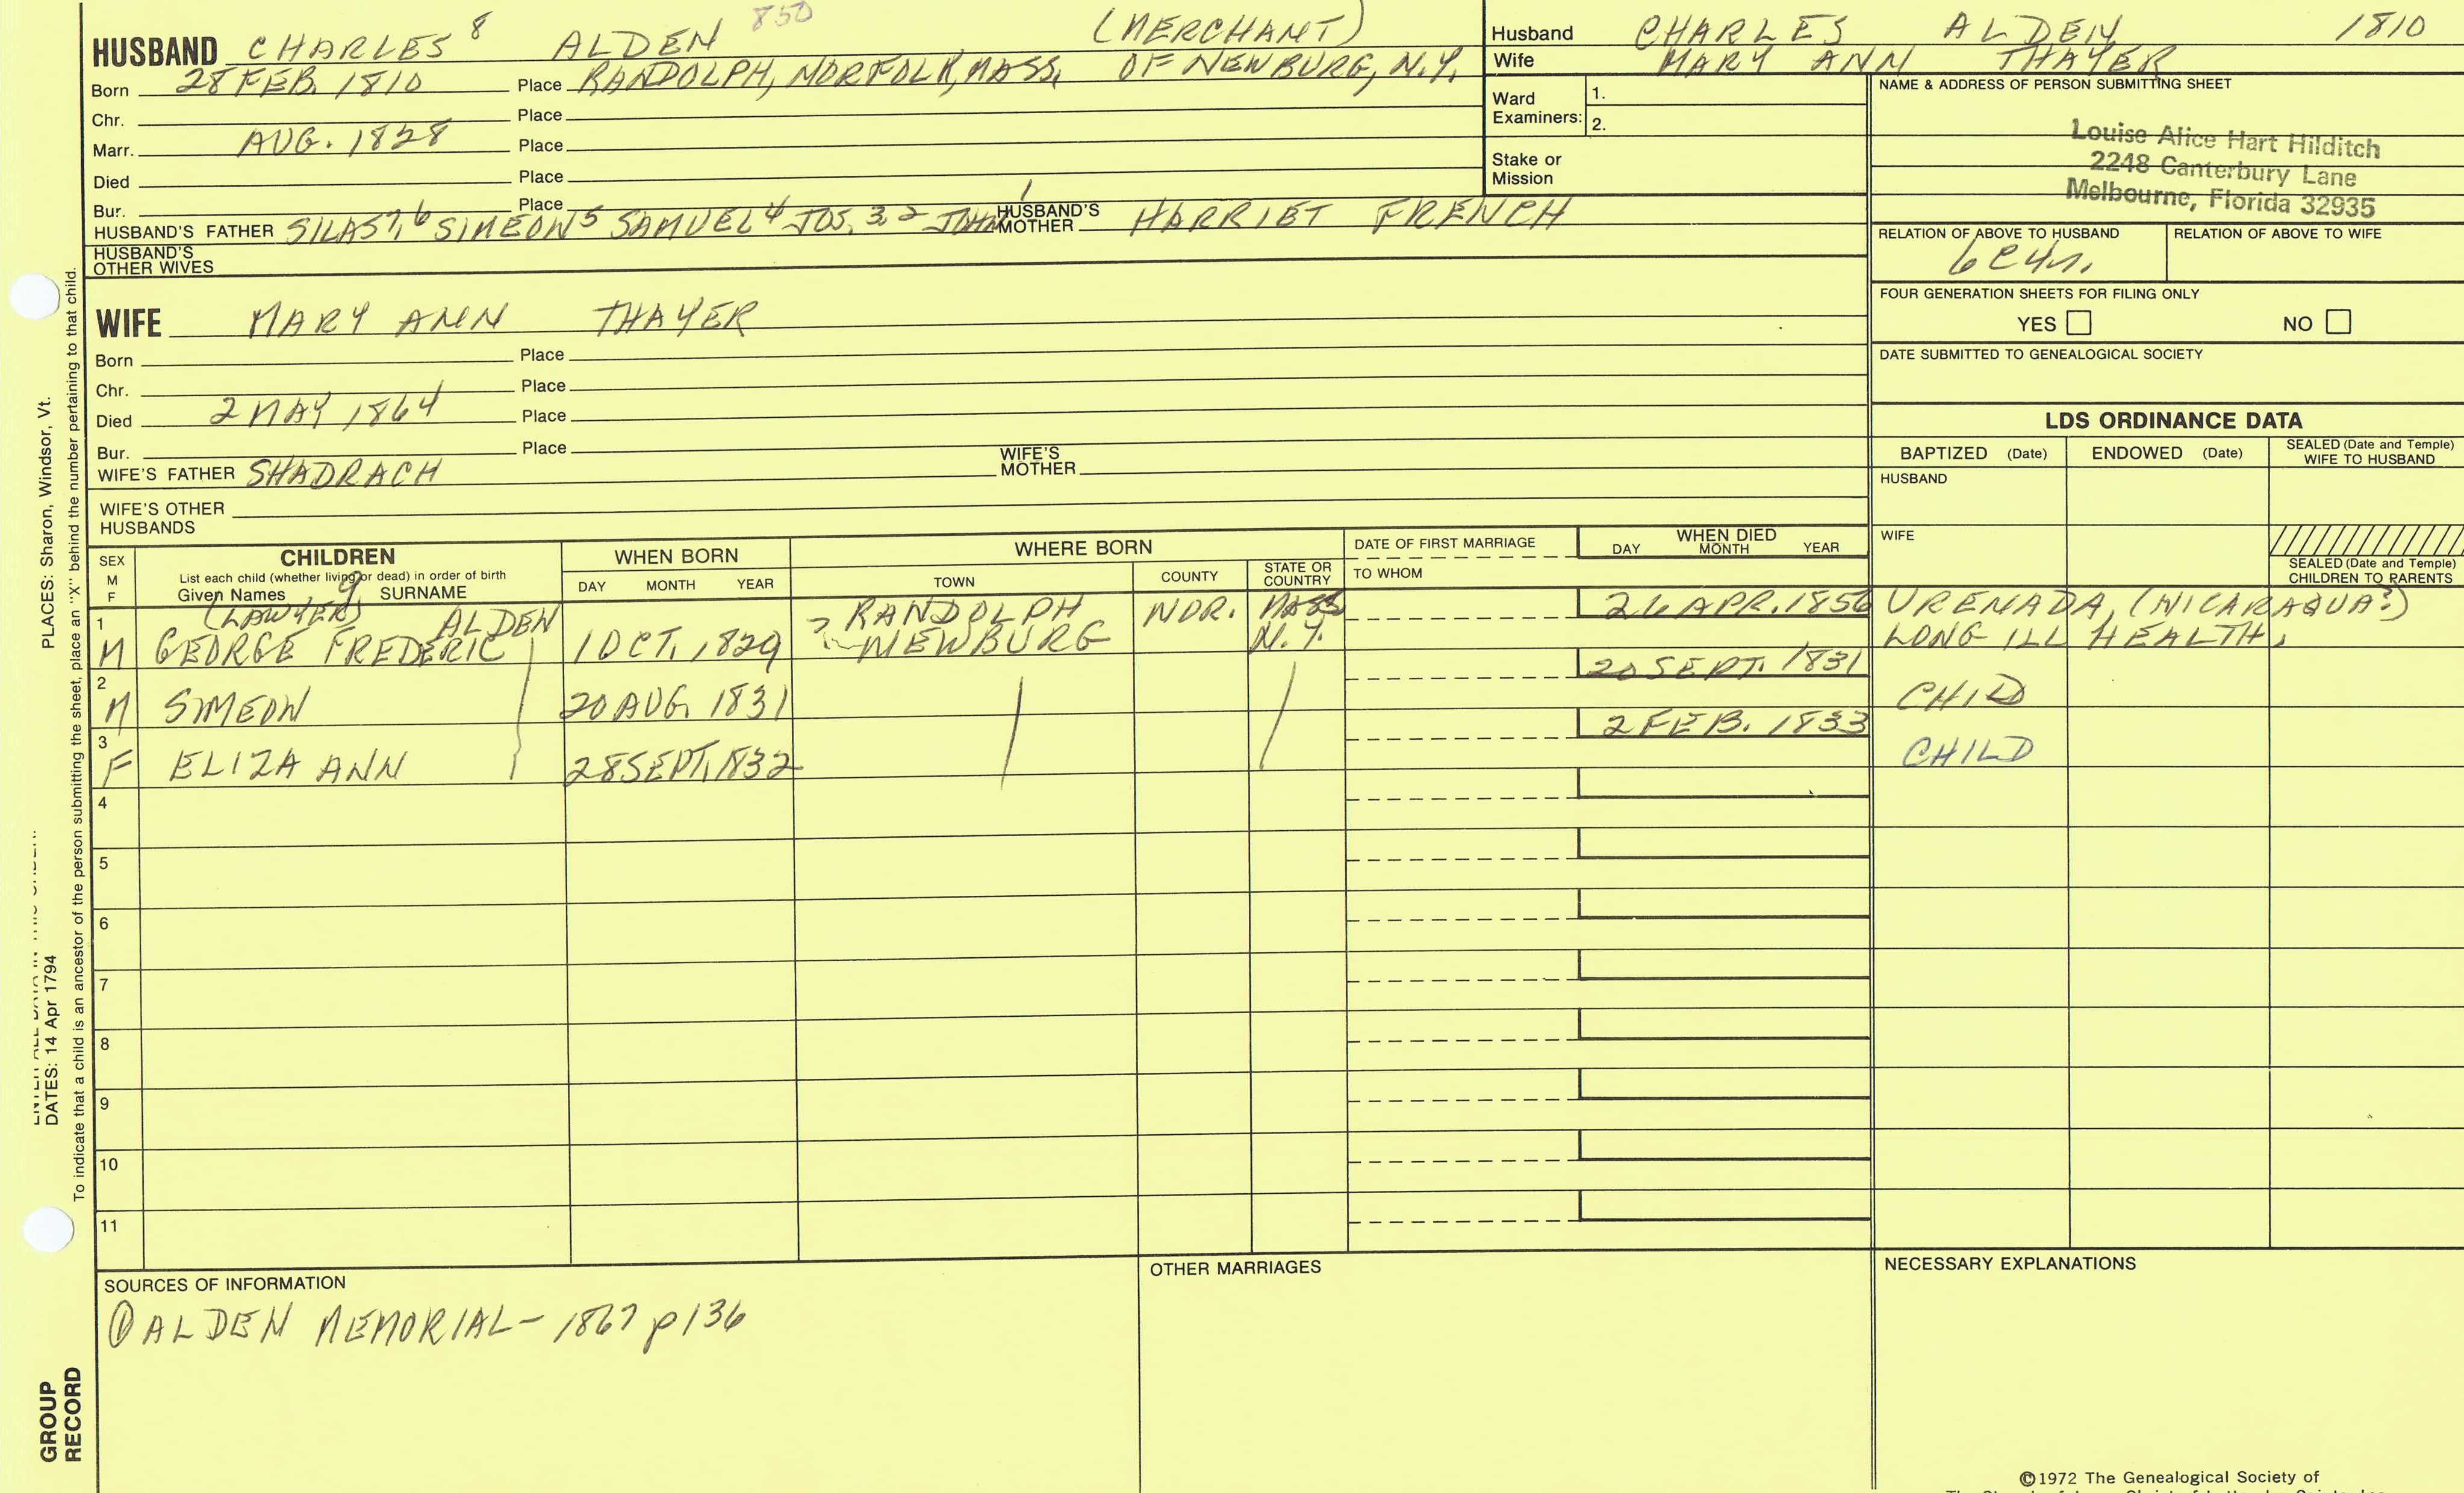 HUSBAND CHARLES 8 ALDEN 850 (MERCHANT)
Born 28 FEB. 1810 Place RANDOLPH, NORFOLK, MASS. OF NEWBURG, N.Y.
Chr. Place
Marr. AUG. 1828 Place
Died Place
Bur. Place
HUSBAND'S FATHER SILAS 7, 6 SIMEON 5 SAMUEL 4 JOS. 3, 2 JOHN 1 HUSBAND'S MOTHER HARRIET FRENCH
HUSBAND'S OTHER WIVES
Husband CHARLES ALDEN 1810
Wife MARY ANN THAYER
Ward Examiners: 1.
2.
Stake or Mission
NAME & ADDRESS OF PERSON SUBMITTING SHEET
Louise Alice Hart Hilditch
2248 Canterbury Lane
Melbourne, Florida 32935
RELATION OF ABOVE TO HUSBAND RELATION OF ABOVE TO WIFE
FOUR GENERATION SHEETS FOR FILING ONLY
YES NO
DATE SUBMITTED TO GENEALOGICAL SOCIETY
WIFE MARY ANN THAYER
Born Place
Chr. Place
Died 2 MAY 1864 Place
Bur. Place
WIFE'S FATHER SHADRACH WIFE'S MOTHER
WIFE'S OTHER HUSBANDS
LDS ORDINANCE DATA
BAPTIZED (Date) ENDOWED (Date) SEALED (Date and Temple) WIFE TO HUSBAND
HUSBAND
WIFE
SEALED (Date and Temple) CHILDREN TO PARENTS
SEX M F
CHILDREN
List each child (whether living or dead) in order of birth
Given Names 9 SURNAME
WHEN BORN
DAY MONTH YEAR
WHERE BORN
TOWN COUNTY STATE OR COUNTRY
DATE OF FIRST MARRIAGE
TO WHOM
WHEN DIED
DAY MONTH YEAR
1 (LAWYER) ALDEN ? RANDOLPH NOR. MASS 26 APR. 1856 URENADA, (NICARAQUA?)
M GEORGE FREDERIC 1 OCT. 1829 NEWBURG N.Y. LONG ILL HEALTH.
2 M SIMEON 20 AUG. 1831 20 SEPT. 1831 CHILD
3 F ELIZA ANN 28 SEPT. 1832 2 FEB. 1833 CHILD
4
5
6
7
8
9
10
11
SOURCES OF INFORMATION
① ALDEN MEMORIAL - 1867 p 136
OTHER MARRIAGES
NECESSARY EXPLANATIONS
©1972 The Genealogical Society of
PLACES: Sharon, Windsor, Vt.
DATES: 14 Apr 1794
To indicate that a child is an ancestor of the person submitting the sheet, place an "X" behind the number pertaining to that child.
GROUP
RECORD